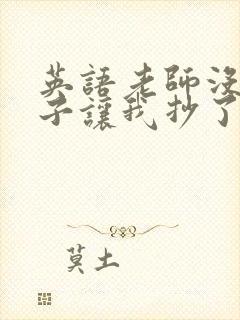 英語老師沒
子讓我抄了
莫土